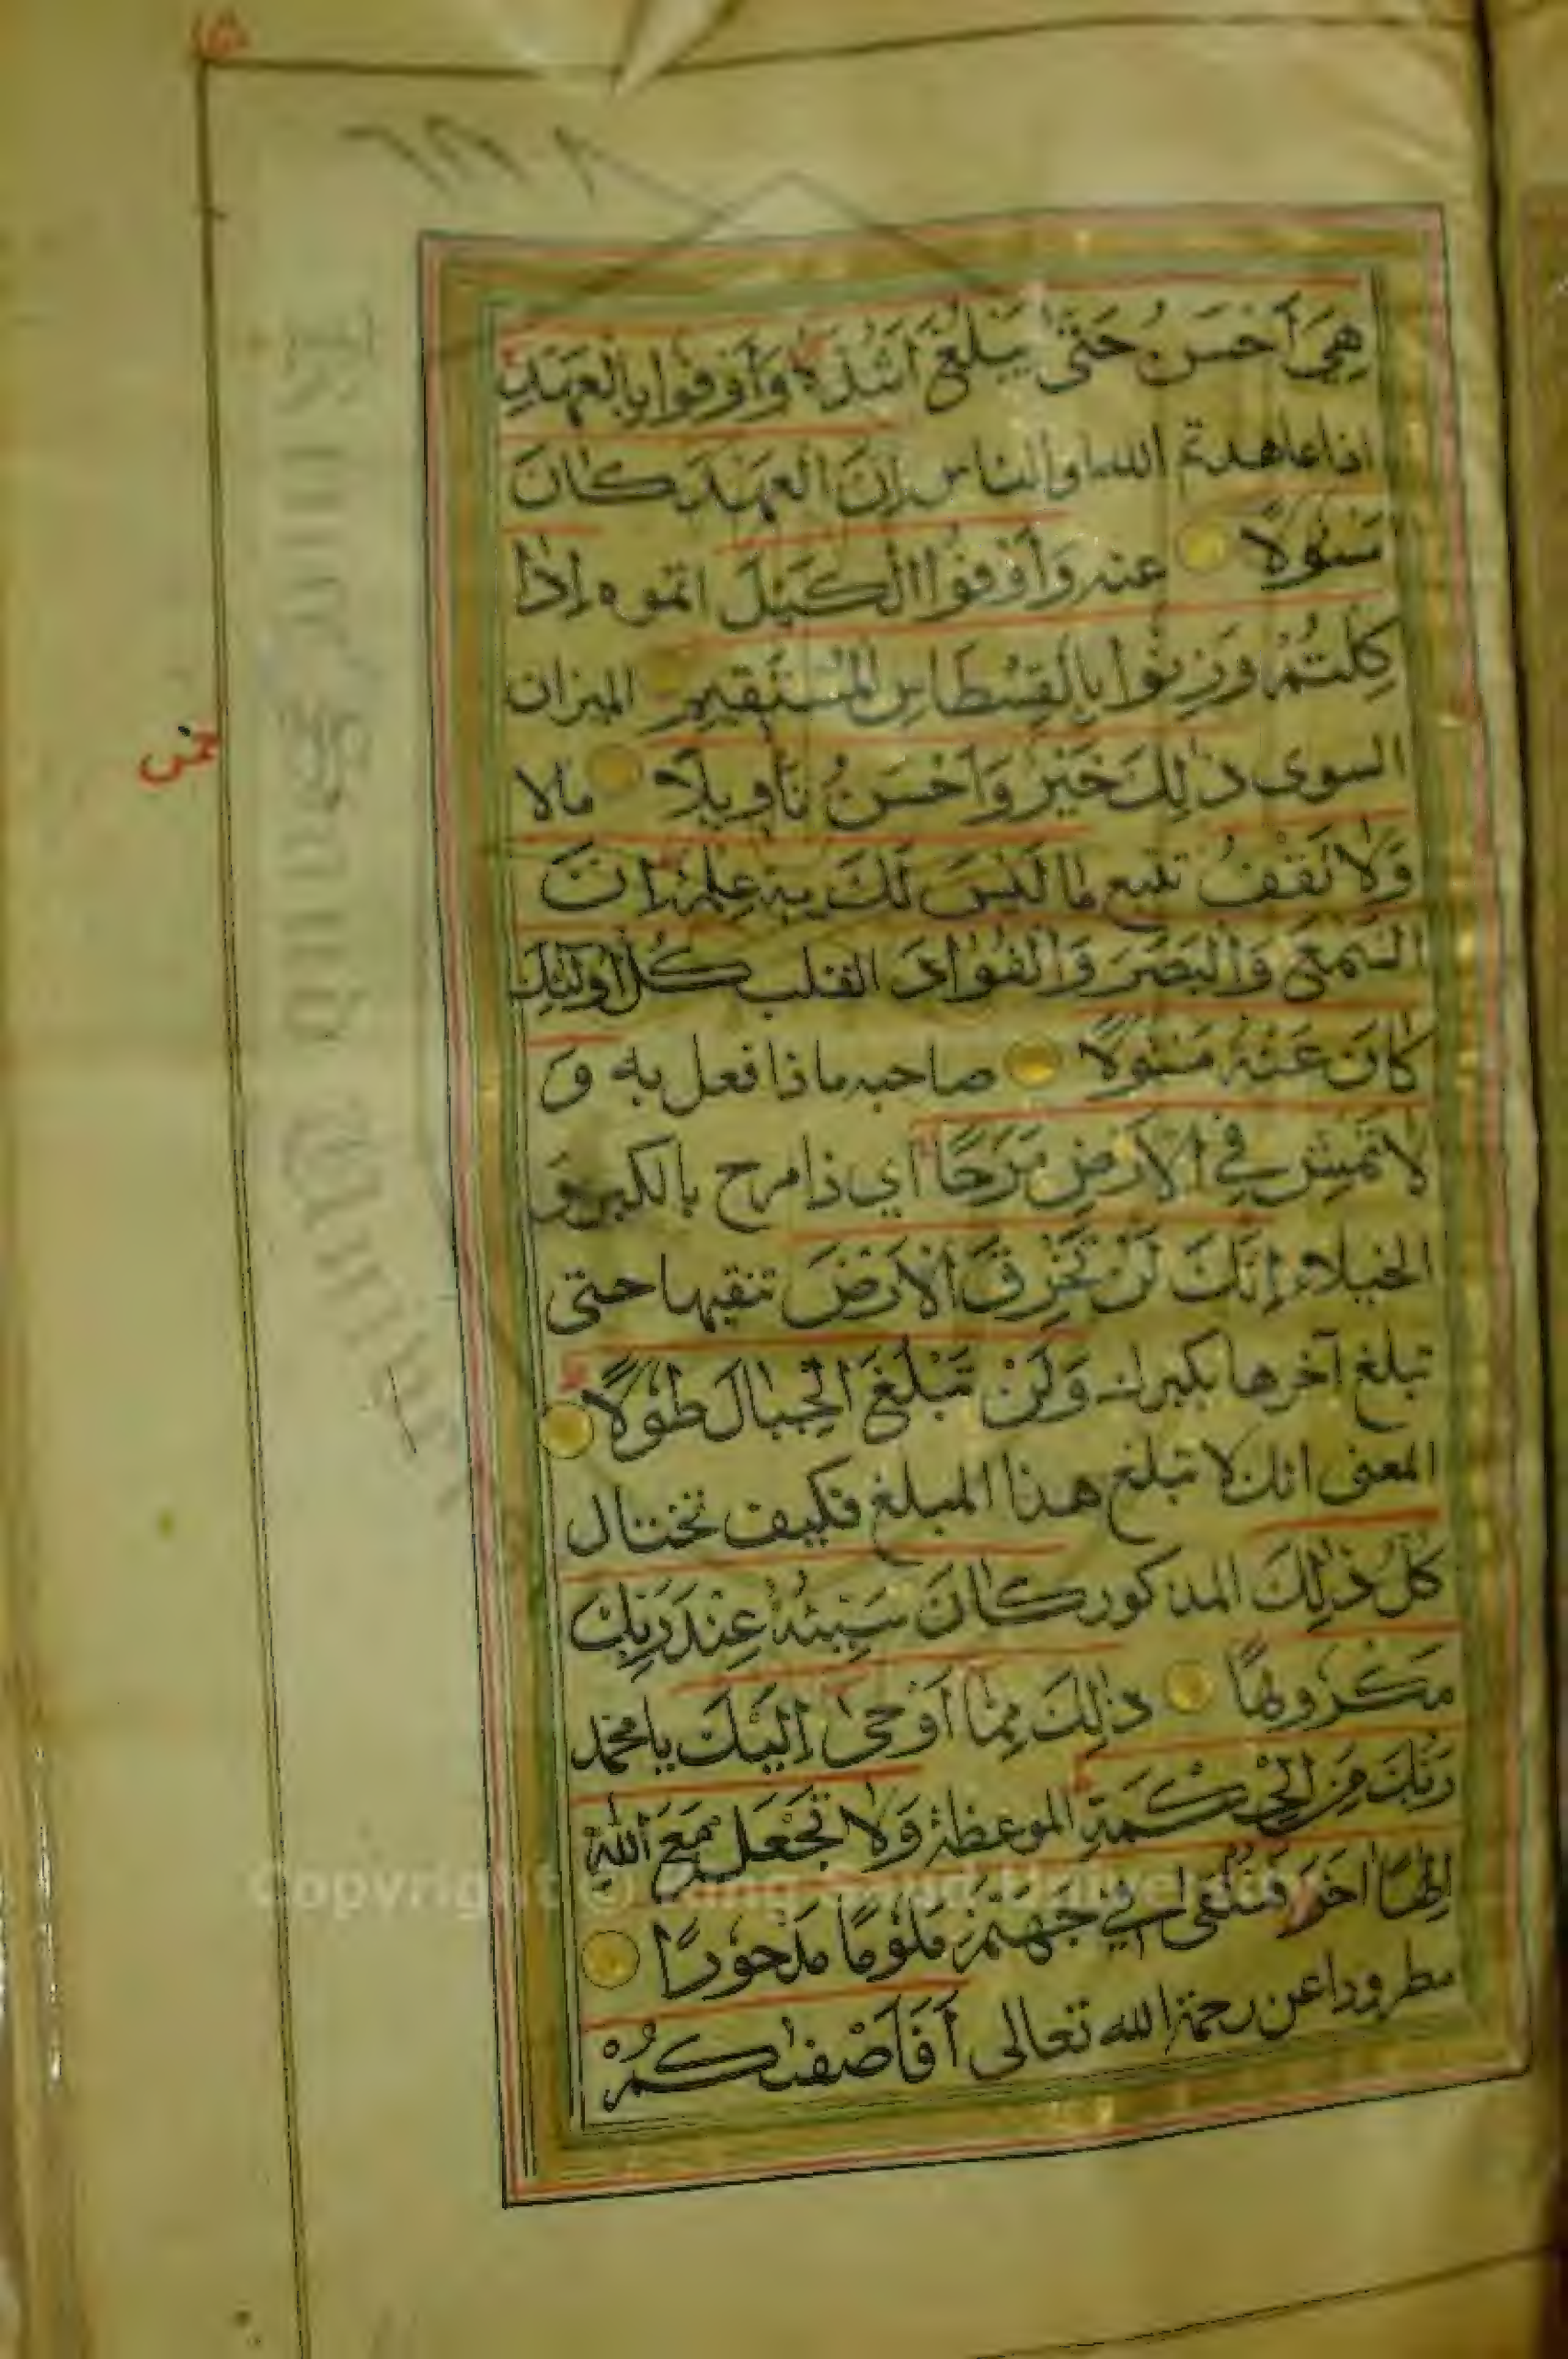 هِيَ أَحْسَنُ حَتّٰى يَبْلُغَ أَشُدَّهُ وَأَوْفُوا بِالْعَهْدِ
اذا عاهدتم الله او الناس إِنَّ الْعَهْدَ كَانَ
مَسْئُولًا عنه وَأَوْفُوا الْكَيْلَ اتموه إِذَا
كِلْتُمْ وَزِنُوا بِالْقِسْطَاسِ الْمُسْتَقِيمِ الميزان
السوى ذٰلِكَ خَيْرٌ وَأَحْسَنُ تَأْوِيلًا مالا
وَلَا تَقْفُ تتبع مَا لَيْسَ لَكَ بِهِ عِلْمٌ إِنَّ
السَّمْعَ وَالْبَصَرَ وَالْفُؤَادَ القلب كُلُّ أُولٰئِكَ
كَانَ عَنْهُ مَسْئُولًا صاحبه ماذا فعل به وَ
لَا تَمْشِ فِي الْأَرْضِ مَرَحًا اي ذا مرح بالكبر و
الخيلاء إِنَّكَ لَنْ تَخْرِقَ الْأَرْضَ تنقبها حتى
تبلغ آخرها بكبرك وَلَنْ تَبْلُغَ الْجِبَالَ طُولًا
المعنى انك لا تبلغ هذا المبلغ فكيف تختال
كُلُّ ذٰلِكَ المذكور كَانَ سَيِّئُهُ عِنْدَ رَبِّكَ
مَكْرُوهًا ذٰلِكَ مِمَّا أَوْحٰى إِلَيْكَ يا محمد
رَبُّكَ مِنَ الْحِكْمَةِ الموعظة وَلَا تَجْعَلْ مَعَ اللّٰهِ
إِلٰهًا اٰخَرَ فَتُلْقٰى فِي جَهَنَّمَ مَلُومًا مَدْحُورًا
مطرودا عن رحمة الله تعالى أَفَأَصْفٰىكُمْ
Copyright © King Saud University
King Saud University